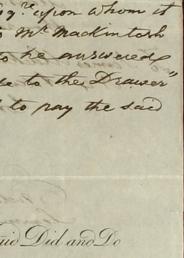 upon whom it
Mr. Mackintosh
to be answered
to the Drawer"
to pay the said
Did and Do